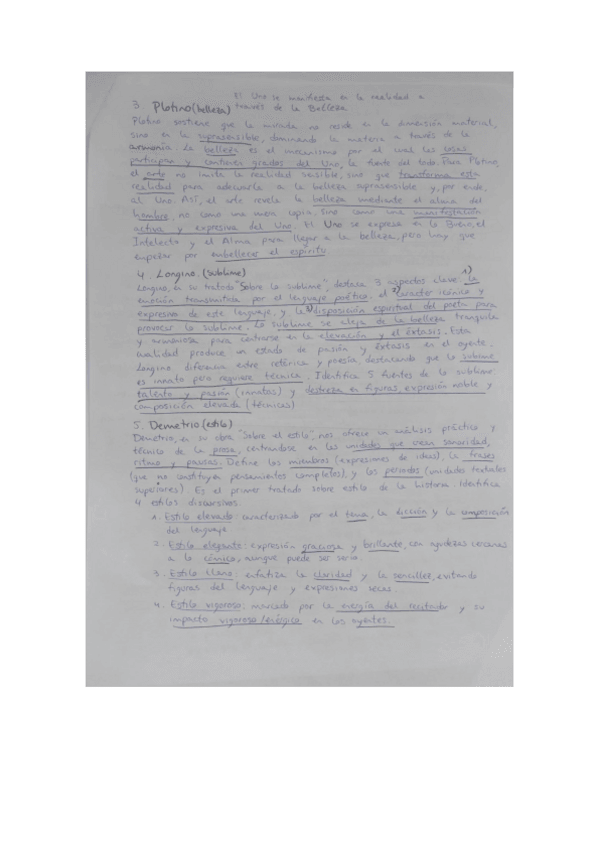 El Uno se manifiesta en la realidad a
3. Plotino (belleza) través de la Belleza
Plotino sostiene que la mirada no reside en la dimensión material,
sino en la suprasensible, dominando la materia a través de la
armonía. La belleza es el mecanismo por el cual las cosas
participan y contienen grados del Uno, la fuente del todo. Para Plotino,
el arte no imita la realidad sensible, sino que transforma esta
realidad para adecuarla a la belleza suprasensible y, por ende,
al Uno. Así, el arte revela la belleza mediante el alma del
hombre, no como una mera copia, sino como una manifestación
activa y expresiva del Uno. El Uno se expresa en lo Bueno, el
Intelecto y el Alma, para llegar a la belleza, pero hay que
empezar por embellecer el espíritu.
4. Longino. (sublime) 1)
Longino, en su tratado "Sobre lo sublime", destaca 3 aspectos clave: la
emoción transmitida por el lenguaje poético, el 2) carácter icónico y
expresivo de este lenguaje, y la 3) disposición espiritual del poeta para
provocar lo sublime. Lo sublime se aleja de la belleza tranquila
y armoniosa para centrarse en la elevación y el éxtasis. Esta
cualidad produce un estado de pasión y éxtasis en el oyente.
Longino diferencia entre retórica y poesía, destacando que lo sublime
es innato pero requiere técnica. Identifica 5 fuentes de lo sublime:
talento y pasión (innatas) y destreza en figuras, expresión noble y
composición elevada (técnicas)
5. Demetrio (estilo)
Demetrio, en su obra "Sobre el estilo", nos ofrece un análisis práctico y
técnico de la prosa, centrándose en las unidades que crean sonoridad,
ritmo y pausas. Define los miembros (expresiones de ideas), la frases
(que no constituyen pensamientos completos), y los períodos (unidades textuales
superiores). Es el primer tratado sobre estilo de la historia. Identifica
4 estilos discursivos.
1. Estilo elevado: caracterizado por el tema, la dicción y la composición
del lenguaje
2. Estilo elegante: expresión graciosa y brillante, con agudezas cercanas
a lo cómico, aunque puede ser serio.
3. Estilo llano: enfatiza la claridad y la sencillez, evitando
figuras del lenguaje y expresiones secas.
4. Estilo vigoroso: marcado por la energía del recitador y su
impacto vigoroso/enérgico en los oyentes.